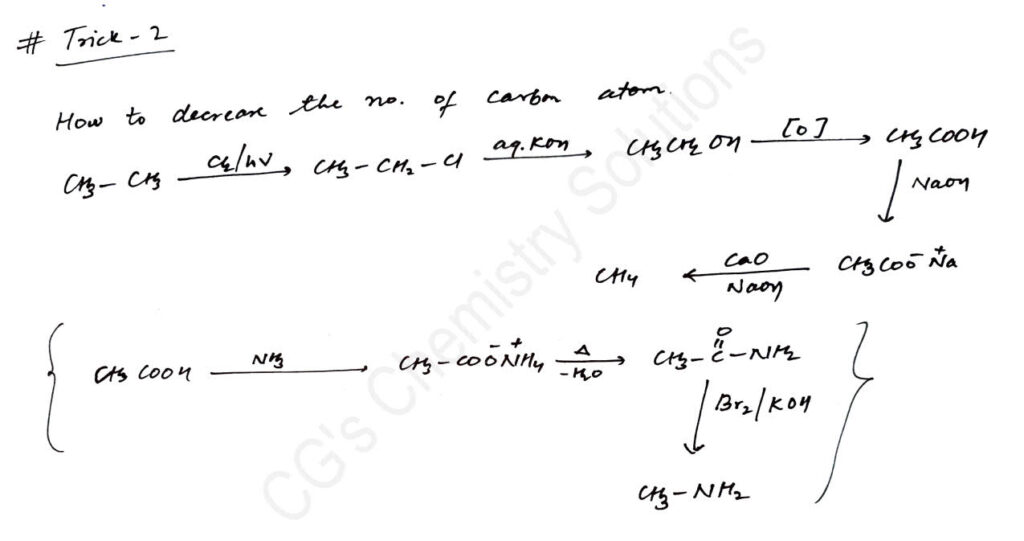 # Trick - 2
How to decrease the no. of carbon atom.
CH3 – CH3 —Cl2/hν→ CH3 – CH2 – Cl —aq. KOH→ CH3CH2OH —[O]→ CH3COOH
NaOH
CH4 ←CaO/NaOH— CH3COO⁻ Na⁺
CH3COOH —NH3→ CH3 – COO⁻NH4⁺ —Δ/–H2O→ CH3 – C(=O) – NH2
Br2/KOH
CH3 – NH2
CG's Chemistry Solutions